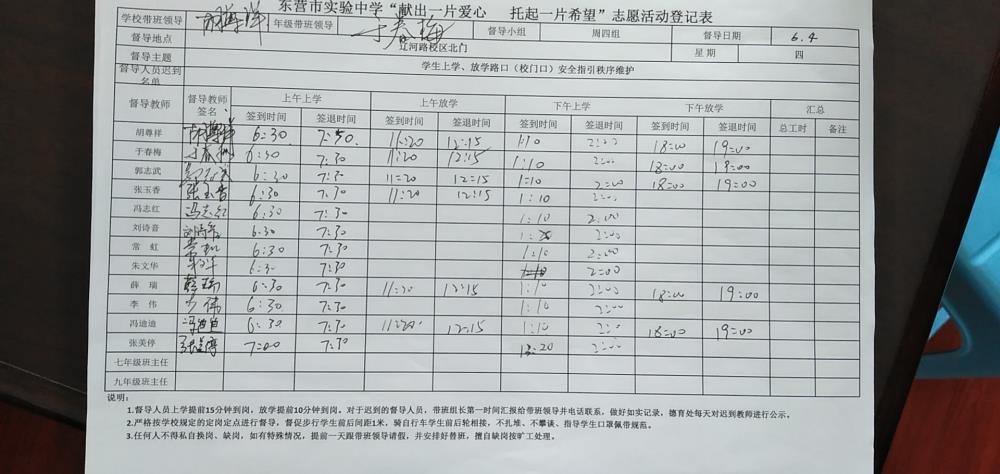 东营市实验中学“献出一片爱心 托起一片希望”志愿活动登记表
学校带班领导 胡尊祥 年级带班领导 于春梅 督导小组 周四组 督导日期 6.4
督导地点 辽河路校区北门 星期 四
督导主题 学生上学、放学路口（校门口）安全指引秩序维护
督导人员迟到名单
督导教师 督导教师签名 上午上学 上午放学 下午上学 下午放学 汇总
签到时间 签退时间 签到时间 签退时间 签到时间 签退时间 签到时间 签退时间 总工时 备注
胡尊祥 胡尊祥 6:30 7:30 11:20 12:15 1:10 2:00 18:00 19:00
于春梅 于春梅 6:30 7:30 11:20 12:15 1:10 2:00 18:00 19:00
郭志武 郭志武 6:30 7:30 11:20 12:15 1:10 2:00 18:00 19:00
张玉香 张玉香 6:30 7:30 11:20 12:15 1:10 2:00
冯志红 冯志红 6:30 7:30 1:10 2:00
刘诗音 刘诗音 6:30 7:30 2:00
常 虹 常虹 6:30 7:30 1:10 2:00
朱文华 6:30 7:30 1:10 2:00
薛 瑞 薛瑞 6:30 7:30 11:20 12:15 1:10 2:00 18:00 19:00
李 伟 李伟 6:30 7:30 1:10 2:00
冯迪迪 冯迪迪 6:30 7:30 11:20 12:15 1:10 2:00 18:00 19:00
张美停 张美停 7:00 7:30 2:00
七年级班主任
九年级班主任
说明：
1.督导人员上学提前15分钟到岗，放学提前10分钟到岗，对于迟到的督导人员，带班组长第一时间汇报给带班领导并电话联系，做好如实记录，德育处每天对迟到教师进行公示。
2.严格按学校规定的定岗定点进行督导，督促步行学生前后间距1米，骑自行车学生前后轮相接，不扎堆、不攀谈、指导学生口罩佩带规范。
3.任何人不得私自换岗、缺岗，如有特殊情况，提前一天跟带班领导请假，并安排好替班，擅自缺岗按旷工处理。